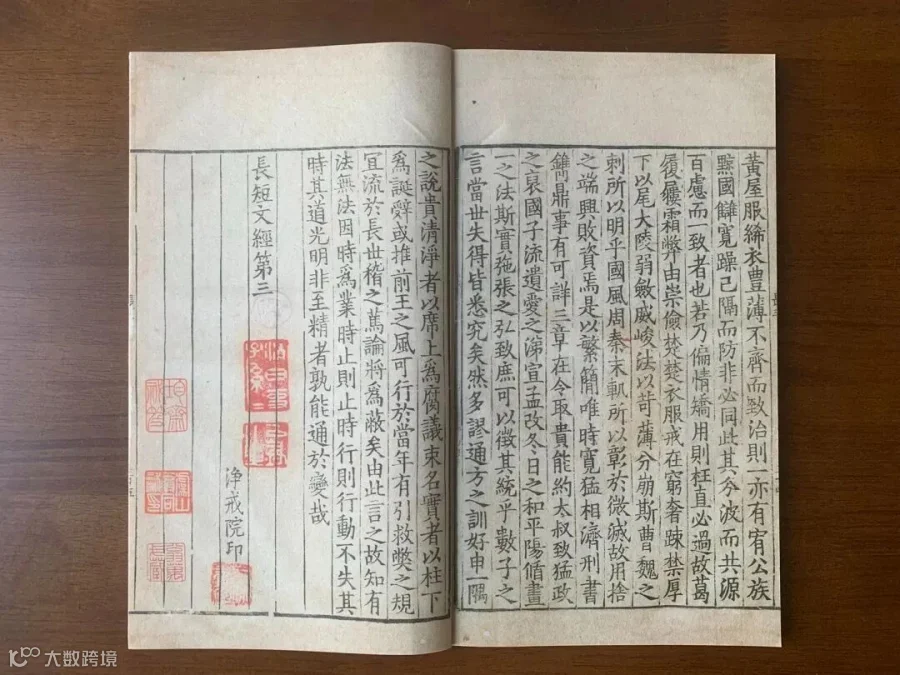 黃屋服絺衣豊薄不齊而致治則一亦有宥公族
黥國讎寬躁己隔而防非必同此其分波而共源
百慮而一致者也若乃偏情矯用則枉直必過故葛
履履霜弊由崇儉楚楚衣服戒在窮奢踈禁厚
下以尾大陵弱斂威峻法以苛薄分崩斯曹魏之
刺所以明乎國風周秦末軌所以彰於微滅故用捨
之端興敗資焉是以繁簡唯時寬猛相濟刑書
鐫鼎事有可詳三章在令取貴能約太叔致猛政
之哀國子流遺愛之涕宣孟改冬日之和平陽循畫
一之法斯實弛張之弘致庶可以徵其統乎數子之
言當世失得皆悉究矣然多謬通方之訓好申一隅
之說貴清淨者以席上為腐議束名實者以柱下
為誕辭或推前王之風可行於當年有引救獘之規
宜流於長世稽之篤論將為蔽矣由此言之故知有
法無法因時為業時止則止時行則行動不失其
時其道光明非至精者孰能通於變哉
長短文經第三
淨戒院印
大数跨境